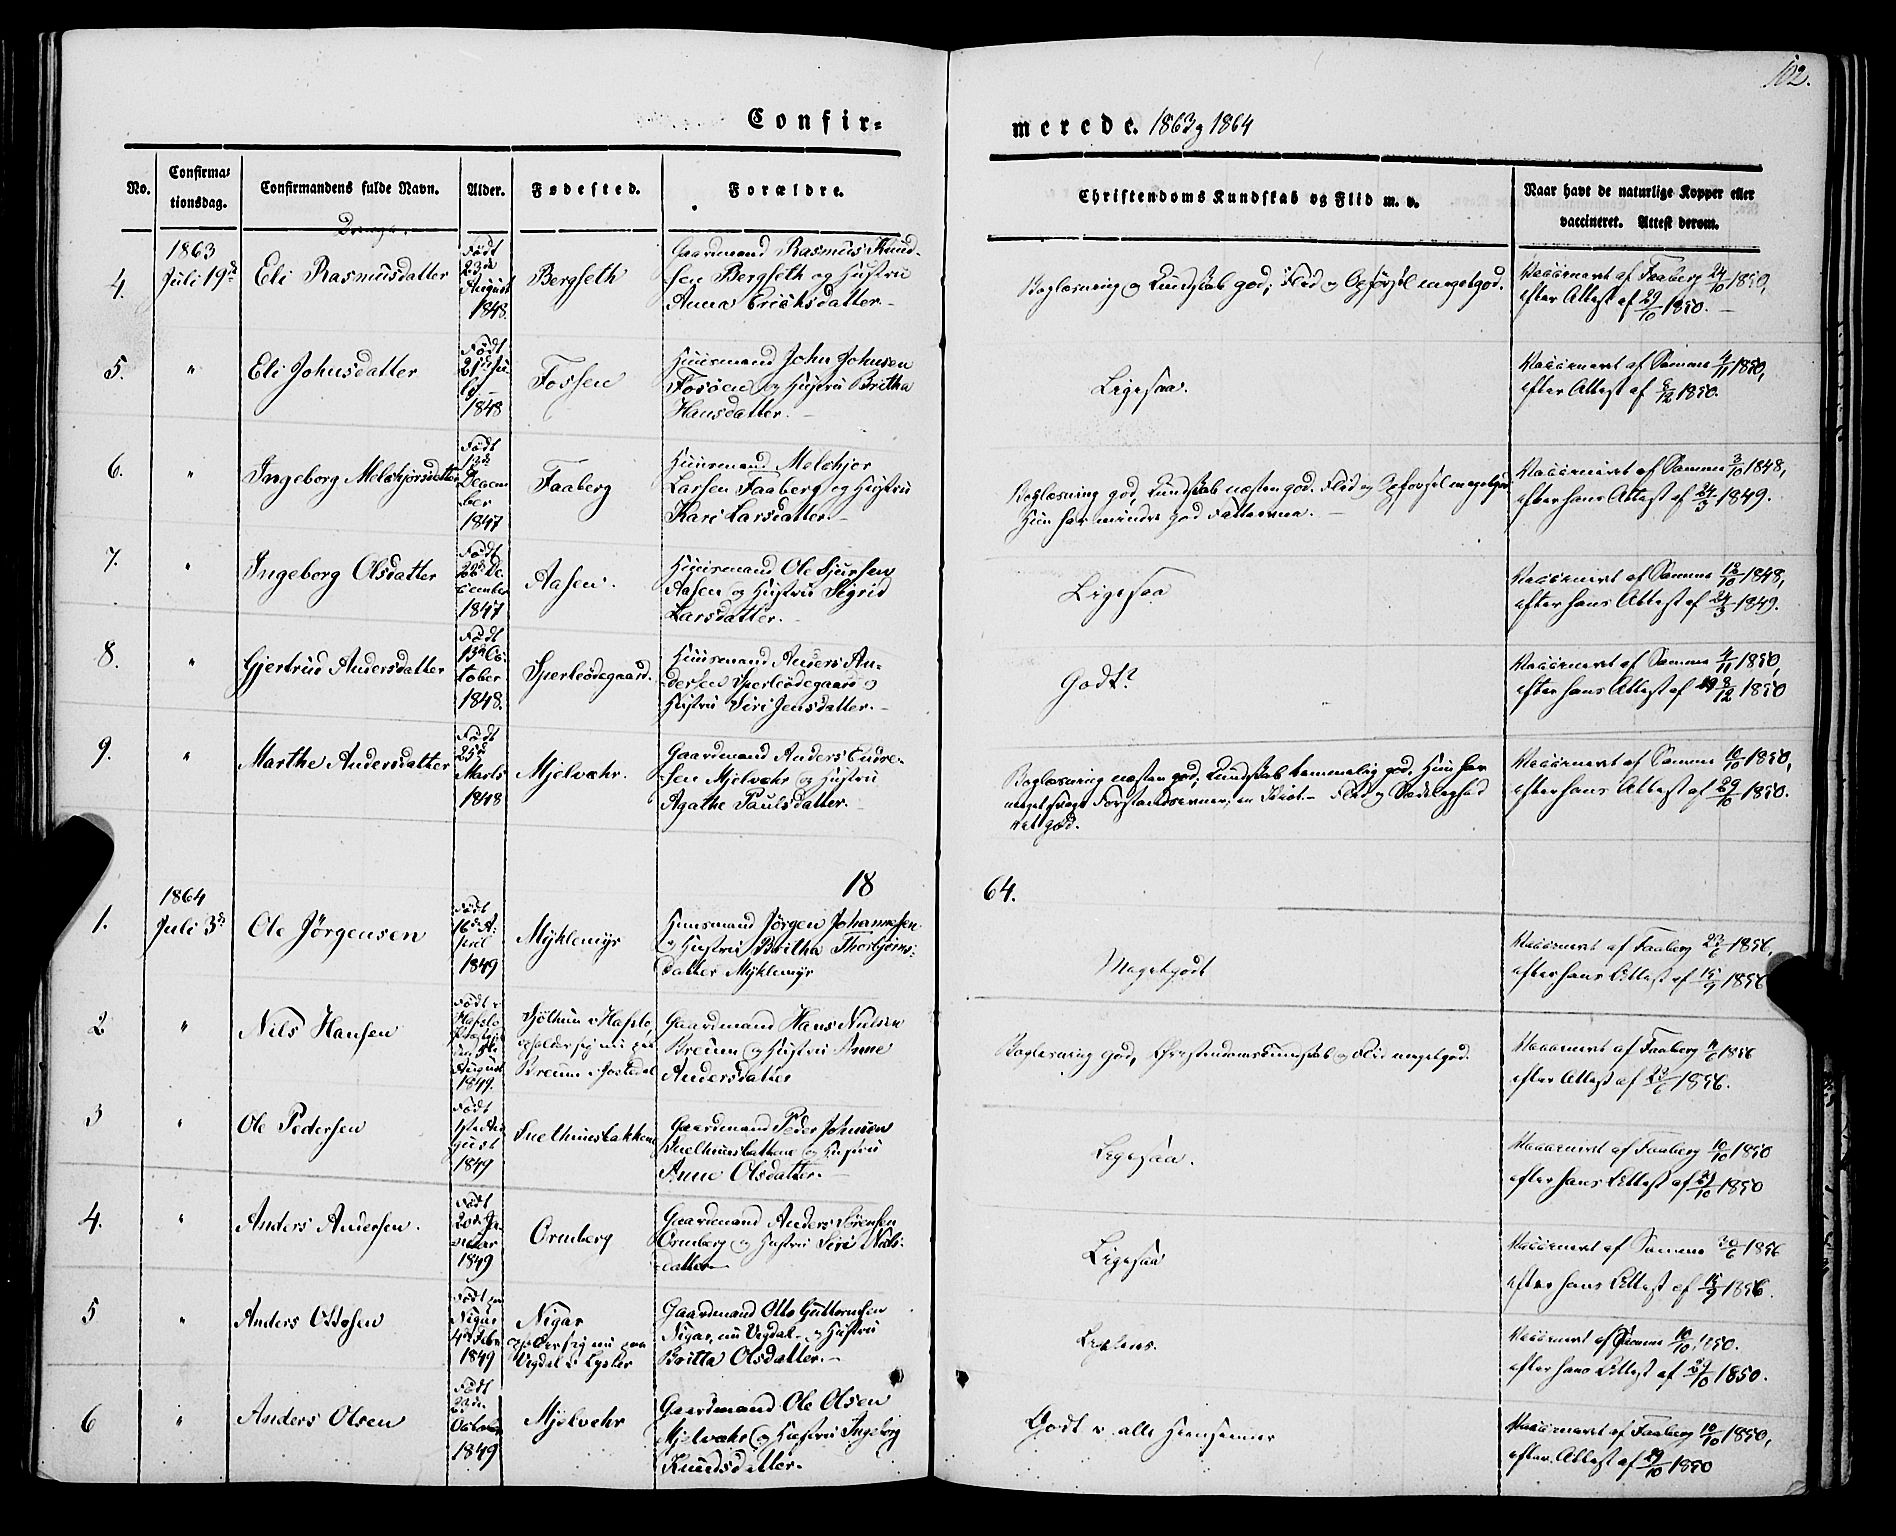 102.
Confir=
merede. 1863 og 1864
No.
Confirma=
tionsdag.
Confirmandens fulde Navn.
Alder.
Fødested.
Forældre.
Christendoms Kundskab og Flid m. v.
Naar havt de naturlige Kopper eller
vaccineret. Attest derom.
4.
1863
Juli 19de
Eli Rasmusdatter
Født
23de
August
1848.
Bergseth
Gaardmand Rasmus Knud-
sen Bergseth og Hustru
Anna Ericksdatter.
Boglæsning og Kundskab god; Flid og Opførsel megetgod.
Vaccineret af Faaberg 24/10 1850,
efter Attest af 29/10 1850.
5.
"
Eli Johnsdatter
Født
21de Ju-
li
1848
Fossen
Huusmand John Johnsen
Fossen og Hustru Britha
Hansdatter.
Ligesaa.
Vaccineret af Samme 4/11 1850,
efter Attest af 8/12 1850.
6.
"
Ingeborg Melchjorsdatter
Født
13de
Decem
ber
1847
Faaberg
Huusmand Melchjor
Larsen Faaberg og Hustru
Kari Larsdatter.
Boglæsning god, Kundskab næsten god. Flid og Opførsel megetgod
Hun har mindre god Fatteevne.
Vaccineret af Samme 3/10 1848,
efter hans Attest af 24/3 1849.
7.
"
Ingeborg Olsdatter
Født
22de De-
cember
1847
Aasen.
Huusmand Ole Sjursen
Aasen og Hustru Sigrid
Larsdatter.
Ligesaa
Vaccineret af Samme 12/10 1848,
efter hans Attest af 24/3 1849.
8.
"
Gjertrud Andersdatter
Født
13de Oc-
tober
1848.
Sperleødegaard.
Huusmand Anders An-
dersen Sperleødegaard og
Hustru Siri Jensdatter.
Godt.
Vaccineret af Samme 4/11 1850,
efter hans Attest af 8/12 1850
9.
"
Marthe Andersdatter
Født
25de
Marts
1848
Mjelvehr.
Gaardmand Anders Endre-
sen Mjelvehr og Hustru
Agathe Paulsdatter.
Boglæsning næsten god; Kundskab temmelig god. Hun har
meget svage Forstandsevner, en Idiot. Flid og Sædelighed
god.
Vaccineret af Samme 10/10 1850,
efter hans Attest af 29/10 1850.
18
64.
1.
1864
Juli 3de
Ole Jörgensen
Født
16de A-
pril
1849
Myklemyr
Huusmand Jörgen Johannesen
og Hustru Britha Thorbjörns-
datter Myklemyr
Megetgodt
Vaccineret af Faaberg 23/6 1856,
efter hans Attest af 15/9 1856
2
"
Nils Hansen
Født i
Hafslo
August
1849.
i Hafslo,
opholder sig nu paa
Breum i Jostedal
Gaardmand Hans Nielsen
Breum og Hustru Anne
Andersdatter
Boglæsning god, Christendomskundskab og Flid megetgod.
Vaccineret af Faaberg 1856
efter Attest af 23/6 1856.
3
"
Ole Pedersen
Født
1ste Au
gust
1849
Snethunsbakkene
Gaardmand Peder Johnsen
Snethunsbakkene og Hustru
Anne Olsdatter.
Ligesaa.
Vaccineret af Faaberg 10/10 1850
efter hans Attest af 29/10 1850
4.
"
Anders Andersen.
Født
20de Ja-
nuar
1849
Ormberg
Gaardmand Anders Sörensen
Ormberg og Hustru Siri Niels-
datter
Ligesaa
Vaccineret af Samme 30/6 1856
efter hans Attest af 15/9 1856.
5
"
Anders Ottosen
Født paa
Nigar
4de Febr
1849
Nigar
opholder sig nu paa
Vigdal i Lyster
Gaardmand Otto Guttormsen
Nigar, nu Vigdal og Hustru
Britta Olsdatter.
Vaccineret af Samme 10/10 1850.
efter hans Attest af 29/10 1850.
6
"
Anders Olsen
Født
22de
October
1849
Mjelvehr
Gaardmand Ole Olsen
Mjelvehr og Hustru Ingeborg
Knudsdatter.
Godt i alle Henseender
Vaccineret af Faaberg 10/10 1850,
efter Attest af 29/10 1850